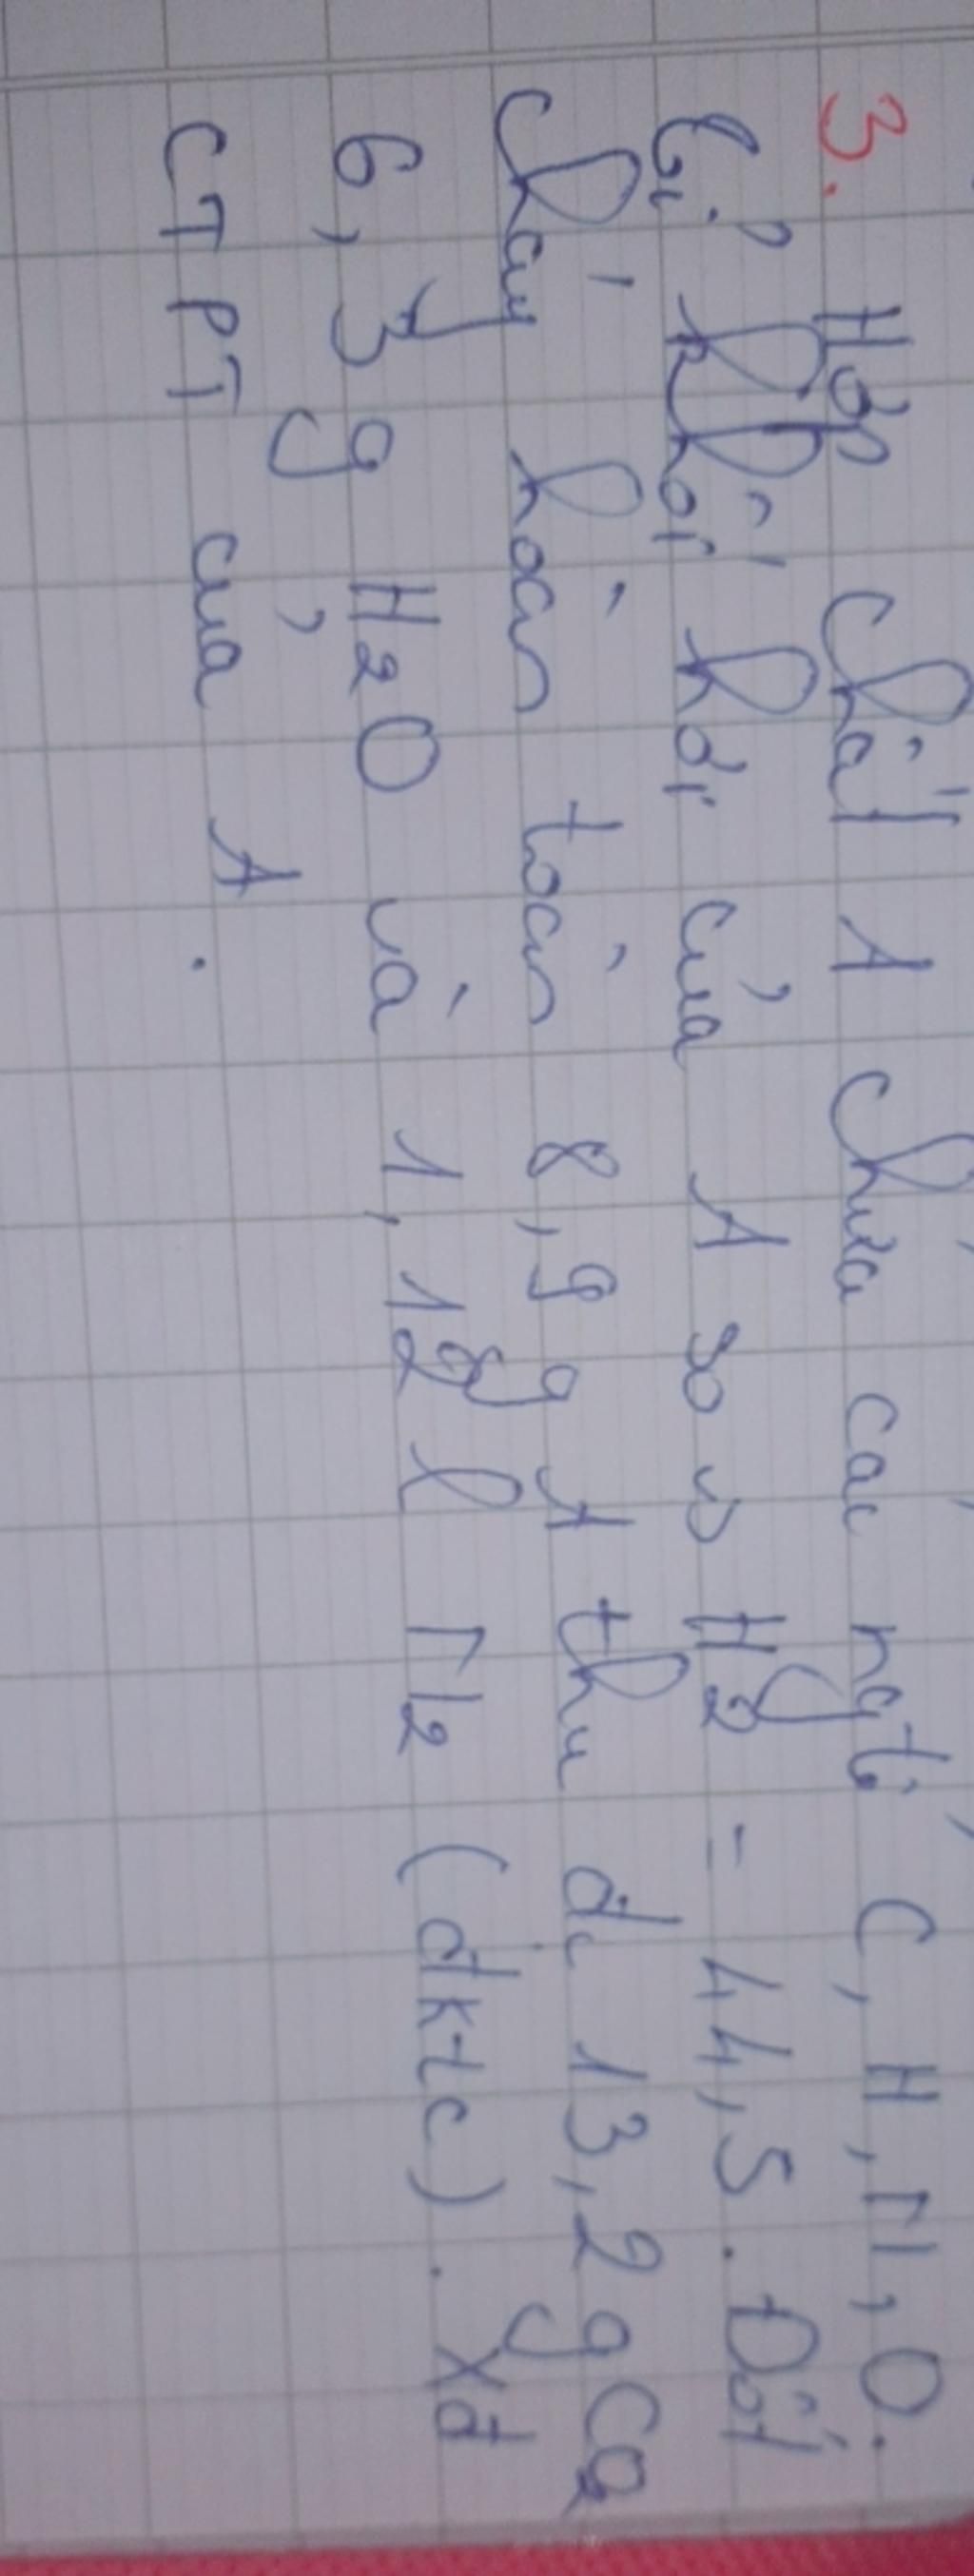 3. Hợp chất A chứa các ngtố C, H, N, O.
Tỉ khối hơi của A so vs H2 = 44,5. Đốt
cháy hoàn toàn 8,9g A thu đc 13,2 g CO2
6,3 g H2O và 1,12 l N2 (đktc). Xđ
CTPT của A.